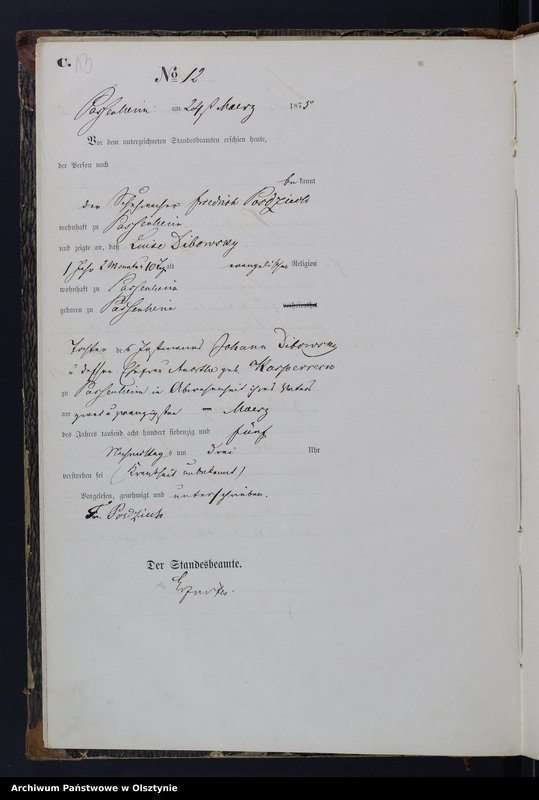 C.
No 12
Passenheim am 24t Maerz 1875
Vor dem unterzeichneten Standesbeamten erschien heute,
der Person nach
be kannt
der Schuhmacher Friedrich
wohnhaft zu Passenheim
und zeigte an, daß Luise Dibowsky
1 Jahr 2 Monate 10 alt evangelischer Religion
wohnhaft zu Passenheim
geboren zu Passenheim
Tochter des Johann Dibowsky
u dessen Ehefrau geb Kasperrein
zu Passenheim in ihres Vaters
am zwei u zwanzigsten Maerz
des Jahres tausend acht hundert siebenzig und fünf
Nachmittags um drei Uhr
verstorben sei (Krankheit unbekannt)
Vorgelesen, genehmigt und unterschrieben.
Fr.
Der Standesbeamte.
Archiwum Państwowe w Olsztynie